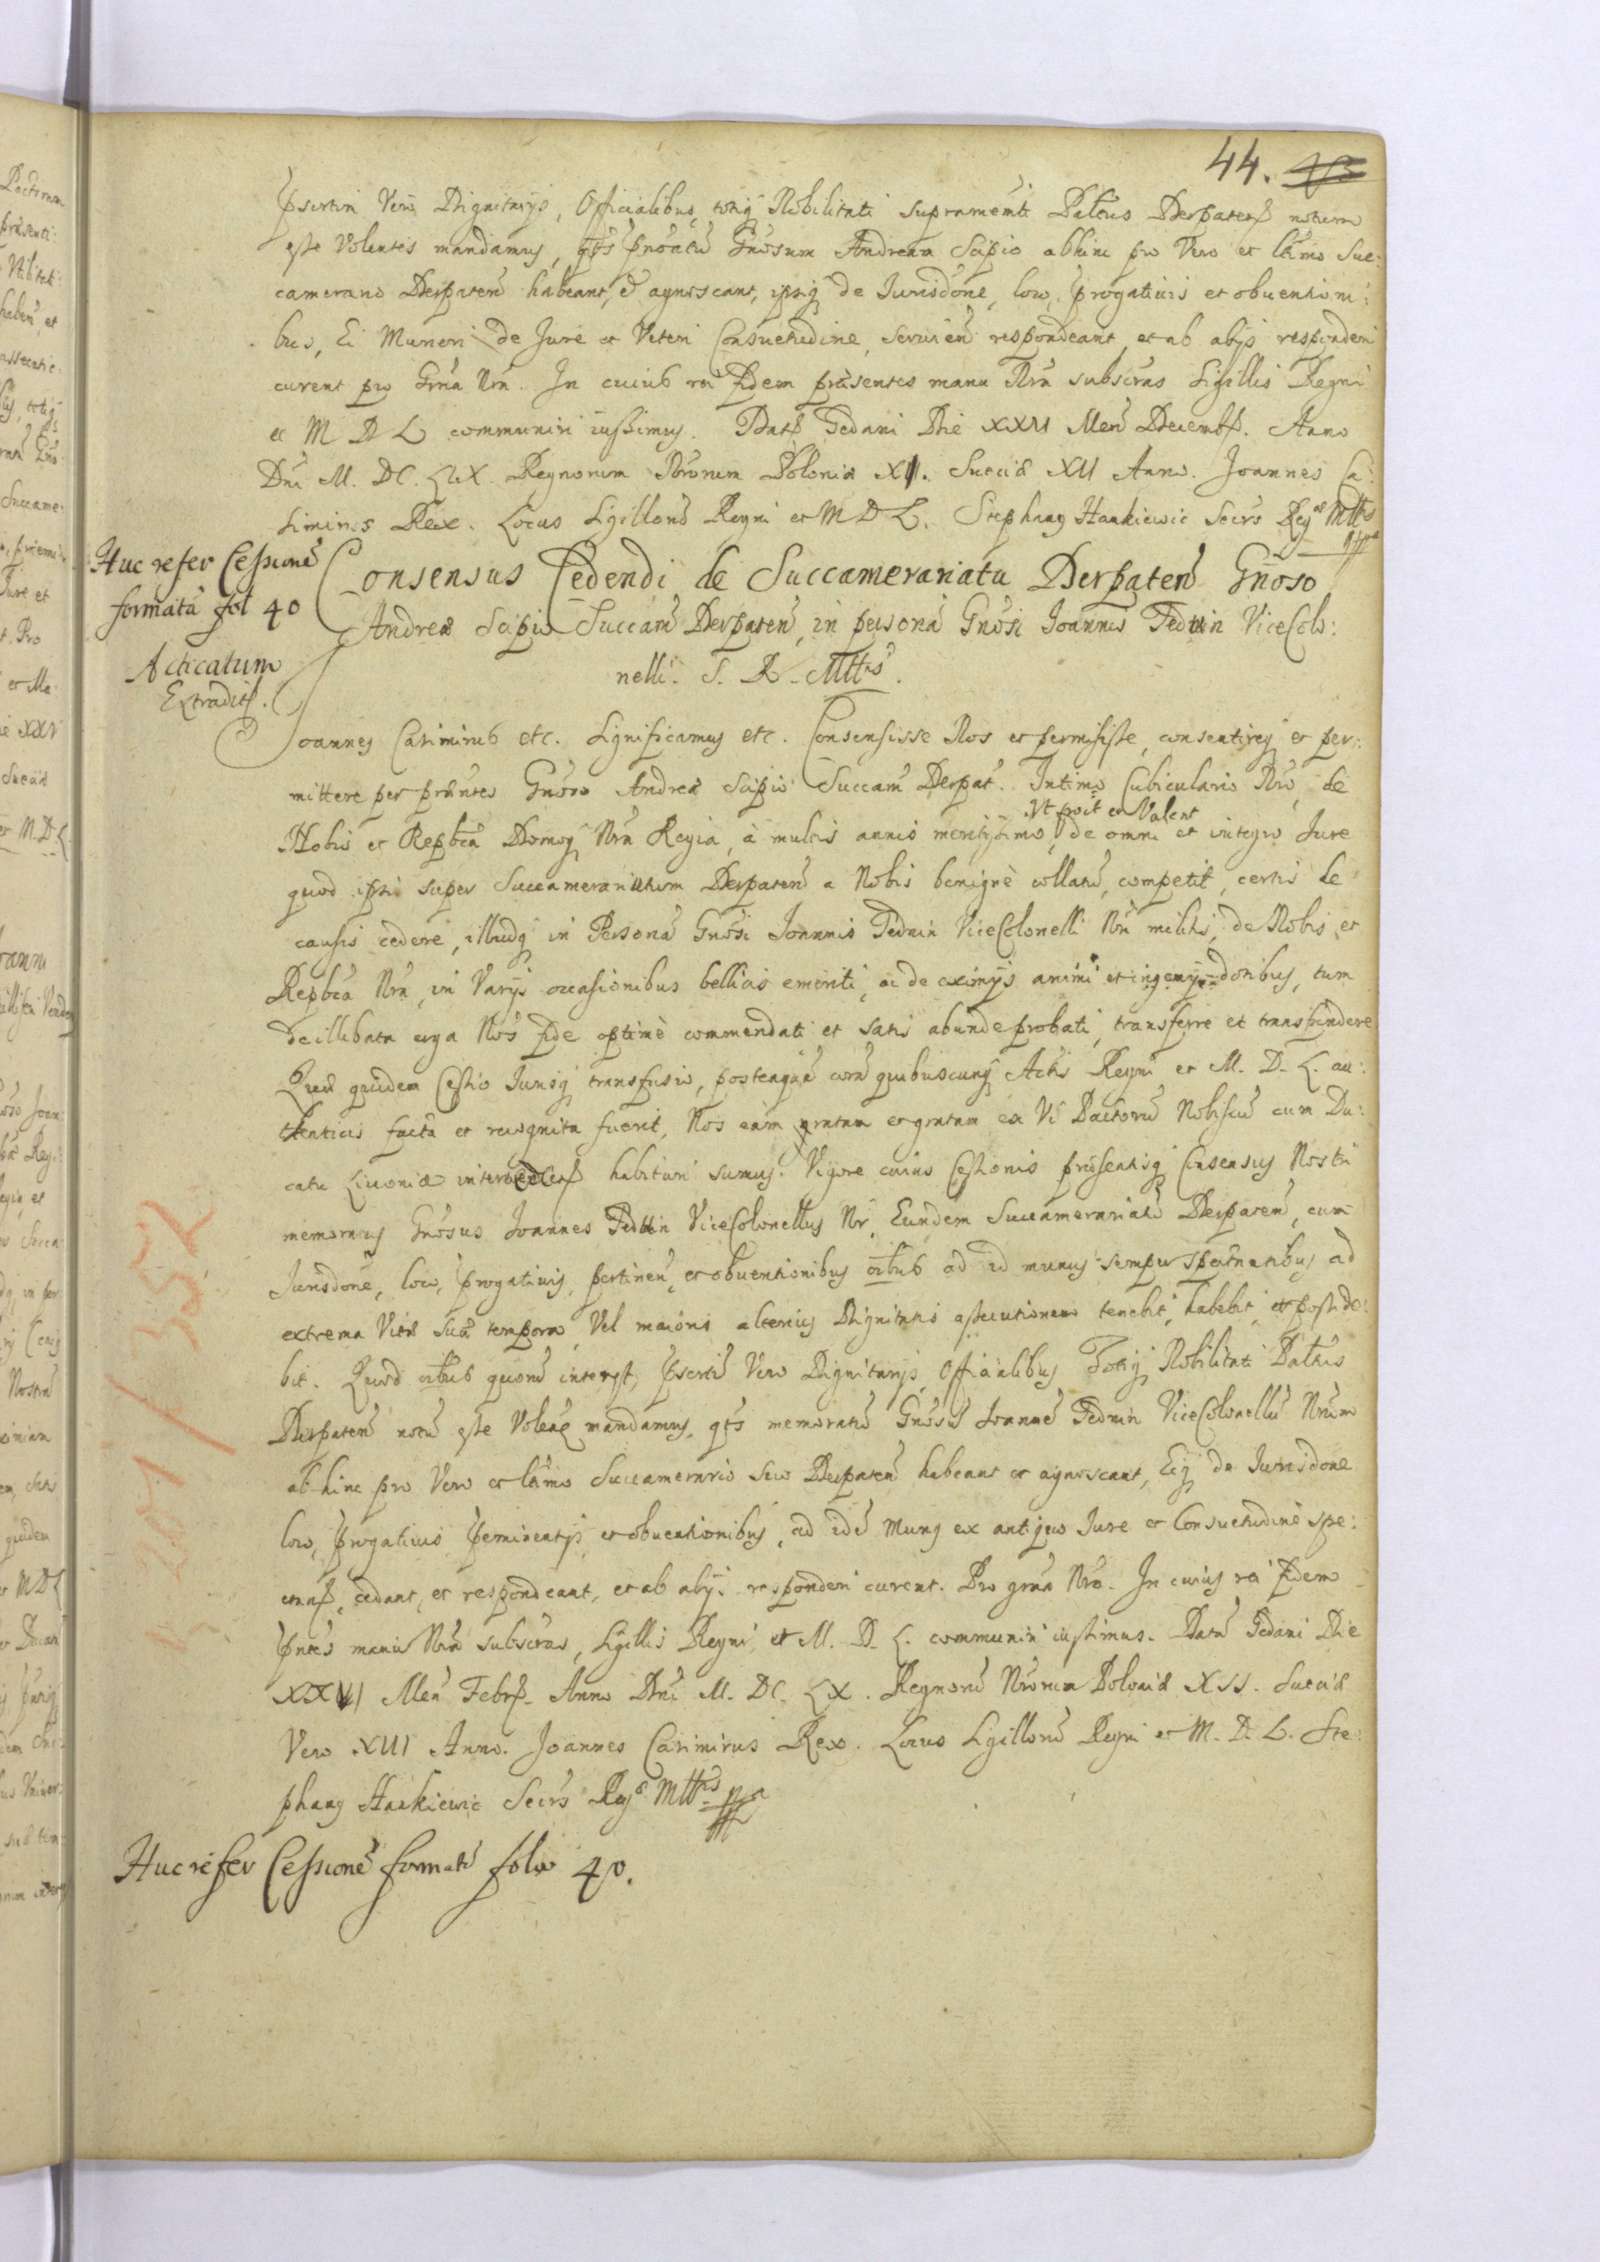 44. 43
Psertim Vero Dignitarijs, Officialibus, totiq Nobilitati supramemti Paltus Derpaten notum
esse Volentes mandamus, qts pnoatu Gnosum Andream Scipio abhinc pro Vero et ltimo Suc:
camerario Derpaten habeant, et agnoscant, ipsiq de Iurisdone, loco, progativis et obuentioni:
bus, Ei Muneri de Jure et Veteri Consuetudine, seruien respondeant, et ab alijs responderi
curent pro Grna Nra. In cuius rei fidem praesentes manu Nra subscras Sigillis Regni
et M D L communiri iussimus. Dat Gedani Die XXVI Men Decemb. Anno
Dni M. DC. LIX. Regnorum Nrorum Poloniæ XI. Sueciæ XII Anno. Joannes Ca:
simirus Rex. Locus Sigillorū Regni et M D L. Stephang Hankiewic Secrs Rey Mttis
Huc refer Cessionē
formatā fol 40
Acticatum
Extradit.
Consensus Cedendi de Succamerariatu Derpaten Gnoso
Andreæ Scipio Succam Derpaten, in personā Gnosi Joannis Tedtwin ViceColo:
nelli S. R. Mttis.
Joannes Casimirus etc. Significamus etc. Consensisse Nos et permisisse, consentireq et per:
mittere per prntes Gnoso Andreæ Scipio Succam Derpat. Intimo Cubiculario Nro, de
Nobis et Repbca Domoq Nra Regia, à multis annis meritissimo, de omni et integro Jure
Vt poit et Valent
quod ipsi super Succamerariatum Derpaten a Nobis benignè collatū, competit, certis de
causis cedere, illudq in Personā Gnosi Joannis Tedtwin ViceColonelli Nri militis, de Nobis et
Repbca Nra, in Varijs occasionibus bellicis emeriti, ac de eximijs animi et ingenij dotibus, tum
de illibata erga Nos fide optimè commendati et satis abunde probati, transferre et transfundere
Quæ quidem Cessio Jurisq transfusio, posteaquā corā quibuscunq Actis Regni et M. D. L. au:
thenticis facta et recognita fuerit, Nos eam gratam et gratam ex Vi Pactorū Nobiscū cum Du:
catu Liuoniæ habituri sumus. Vigore cuius Cessionis præsentisq Consensus Nostri
memoratus Gnosus Joannes Tedtwin ViceColonellus Nr, Eundem Succamerariatū Derpaten, cum
Jurisdone, loco, progativis, pertinen, et obuentionibus oibus ad id munus semper spectantibus ad
extrema Vitæ Suæ tempora, Vel maioris alterius Dignitatis assecutionem tenebit, habebit, et posside:
bit. Quod oibus quorū interest, Psertim Vero Dignitarijs, Officialibus Totiq Nobilitati Paltus
Derpaten notū esse Volentes mandamus, qts memoratū Gnosū Joannē Tedtwin ViceColonellū Nrum
abhinc pro Vero et ltimo Succamerario suo Derpaten habeant et agnoscant, Eiq de Jurisdone
loco, progativis Peminentijs et obuentionibus, ad idē Munus ex antiquo Jure et Consuetudine spe:
ctan, cedant, et respondeant, et ab alijs responderi curent. Pro grna Nra. In cuius rei fidem
Pntes manu Nra subscras, Sigillis Regni et M. D. L. communiri iussimus. Datū Gedani Die
XXVI Men Febr. Anno Dni M. DC. LX. Regnorū Nrorum Poloniæ XII. Sueciæ
Vero XIII Anno. Joannes Casimirus Rex. Locus Sigillorū Regni et M. D. L. Ste:
phang Hankiewic Secrs Rey Mttis
Huc refer Cessionē formatā folio 40.